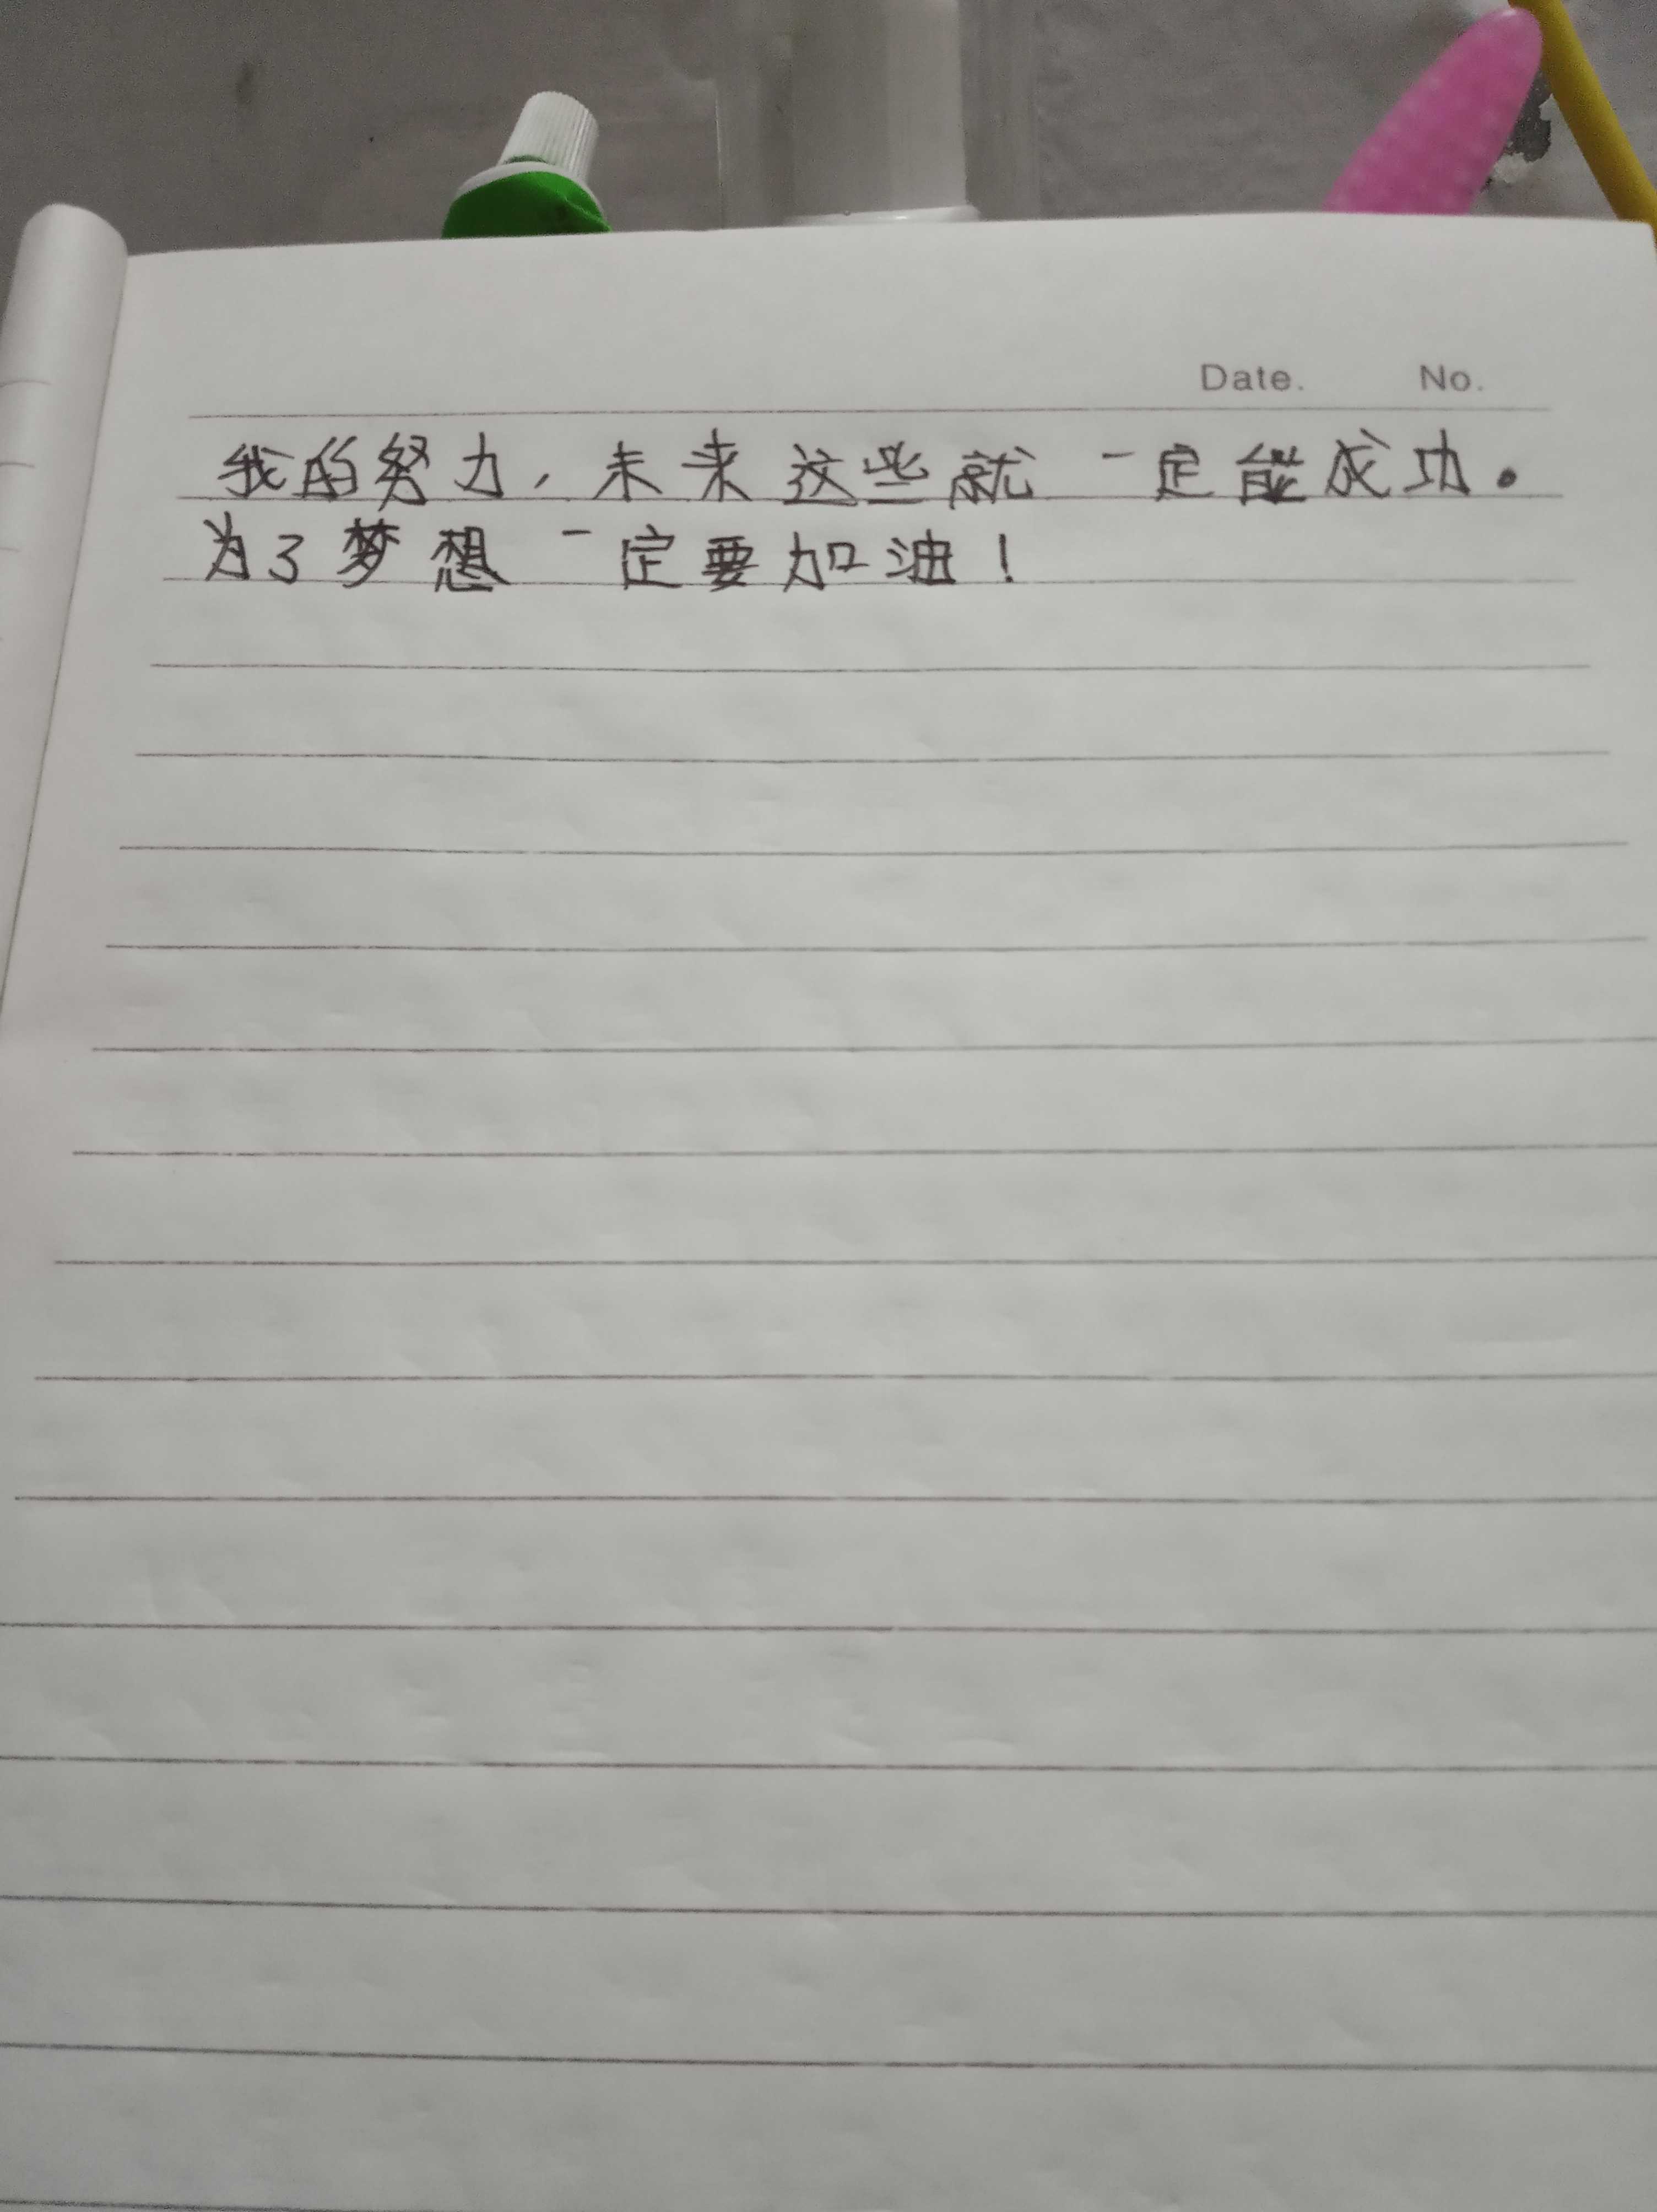 Date. No.
我的努力,未来这些就一定能成功。
为了梦想一定要加油!